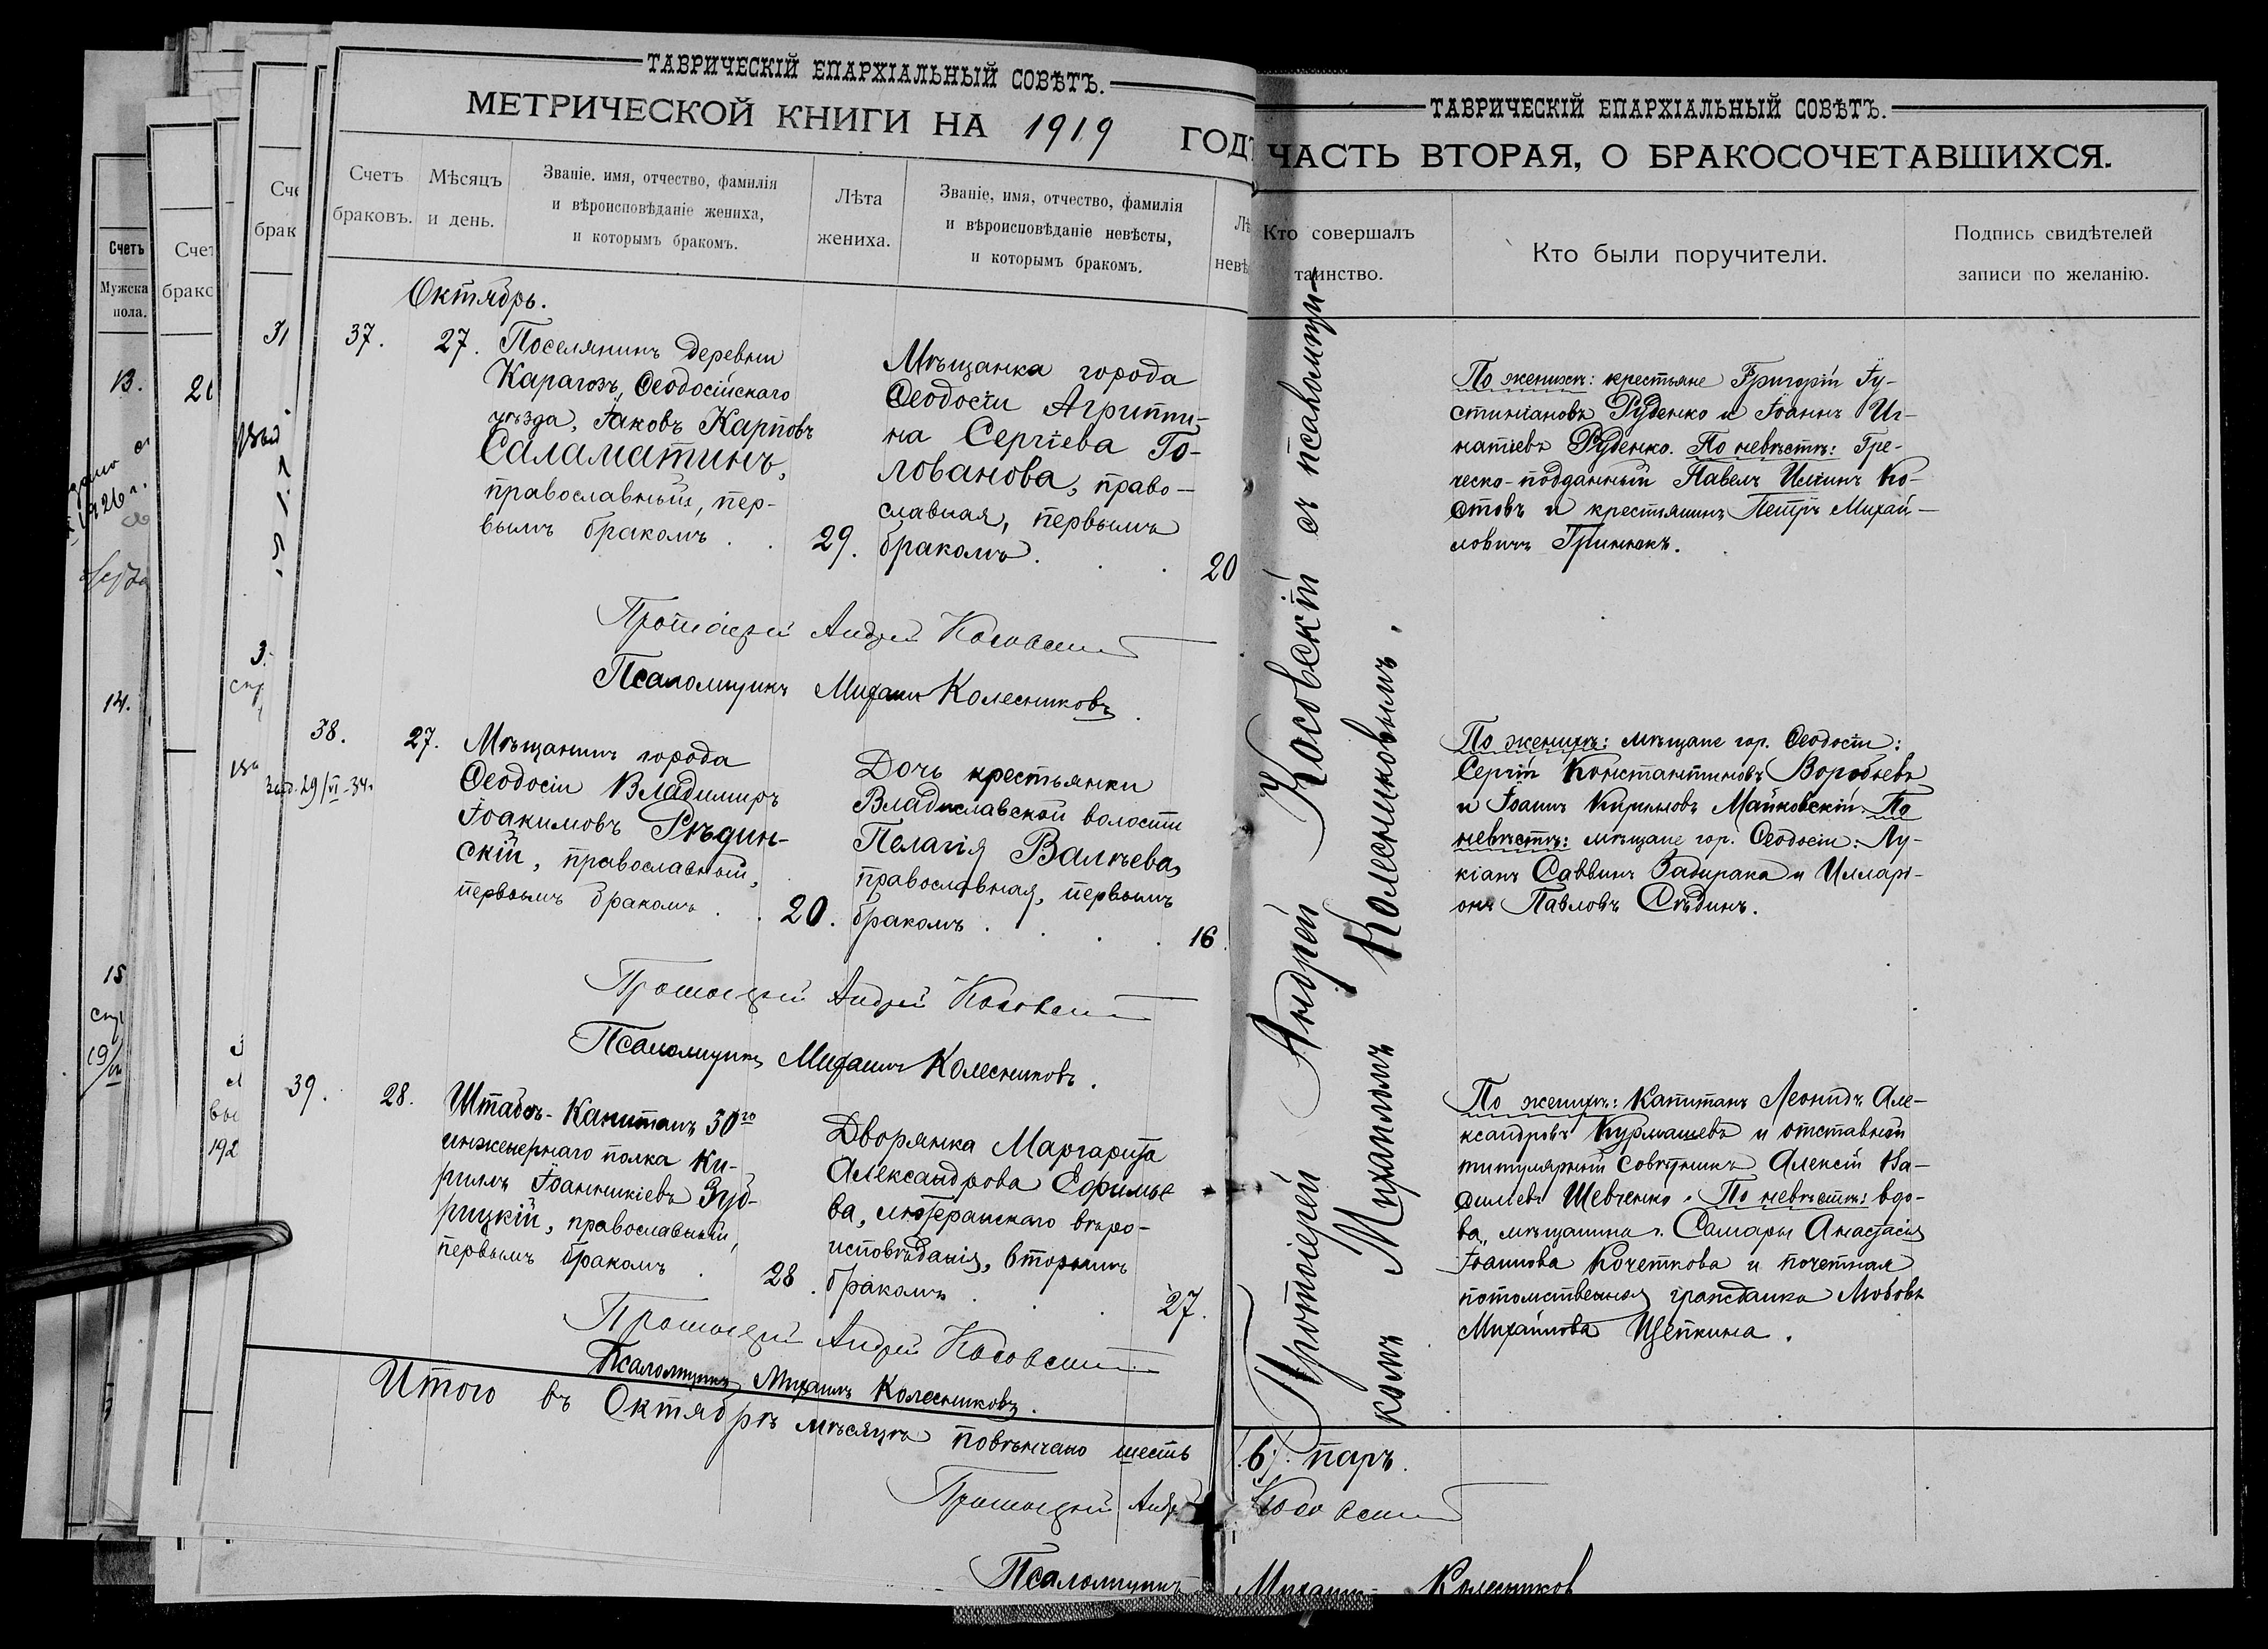 ТАВРИЧЕСКІЙ ЕПАРХІАЛЬНЫЙ СОВѢТЪ.
МЕТРИЧЕСКОЙ КНИГИ НА 1919 ГОДЪ
Счетъ браковъ.
Мѣсяцъ и день.
Званіе. имя, отчество, фамилія
и вѣроисповѣданіе жениха,
и которымъ бракомъ.
Лѣта
жениха.
Званіе, имя, отчество, фамилія
и вѣроисповѣданіе невѣсты,
и которымъ бракомъ.
Октябрь.
37.
27.
Поселянинъ деревни
Карагозъ, Ѳеодосійскаго
уѣзда, Іаковъ Карповъ
Саламатинъ,
православный, пер-
вымъ бракомъ . .
29.
Мѣщанка города
Ѳеодосіи Агриппи-
на Сергіева Го-
лованова, право-
славная, первымъ
бракомъ . . .
20
Протоіерей Андрей Косовскій
Псаломщикъ Михаилъ Колесниковъ.
38.
27.
29/VI-34
Мѣщанинъ города
Ѳеодосіи Владимиръ
Іоакимовъ Рѣдин-
скій, православный,
первымъ бракомъ . .
20.
Дочь крестьянки
Владиславской волости
Пелагія Валѣева,
православная, первымъ
бракомъ . . .
16.
Протоіерей Андрей Косовскій
Псаломщикъ Михаилъ Колесниковъ.
39.
28.
Штабсъ-Капитанъ 30го
инженернаго полка Ки-
риллъ Іоанникіевъ Зуб-
рицкій, православный,
первымъ бракомъ .
28.
Дворянка Маргарита
Александрова Ефимье
ва, лютеранскаго вѣро-
исповѣданія, вторымъ
бракомъ . . .
27.
Протоіерей Андрей Косовскій
Псаломщикъ Михаилъ Колесниковъ.
Итого въ Октябрѣ мѣсяцѣ повѣнчано шесть (6) паръ.
Протоіерей Андр Косовскій
Псаломщикъ Михаилъ Колесников
ТАВРИЧЕСКІЙ ЕПАРХІАЛЬНЫЙ СОВѢТЪ.
ЧАСТЬ ВТОРАЯ, О БРАКОСОЧЕТАВШИХСЯ.
Кто совершалъ
таинство.
Кто были поручители.
Подпись свидѣтелей
записи по желанію.
Протоіерей Андрей Косовскій съ псаломщи-
комъ Михаиломъ Колесниковымъ.
По женихѣ: крестьяне Григорій Іу-
стиніановъ Руденко и Іоаннъ Иг-
натіевъ Руденко. По невѣстѣ: Гре-
ческо-подданный Павелъ Ильинъ Ко-
стовъ и крестьянинъ Петръ Михай-
ловичъ Гриннокъ.
По женихѣ: мѣщане гор. Ѳеодосіи:
Сергій Константиновъ Воробьевъ
и Іоаннъ Кирилловъ Майковскій. По
невѣстѣ: мѣщане гор. Ѳеодосіи: Лу-
кіанъ Саввинъ Задирака и Илларі-
онъ Павловъ Сѣдинъ.
По женихѣ: Капитанъ Леонидъ Але-
ксандровъ Курмашевъ и отставной
титулярный Совѣтникъ Алексій Ва-
силіевъ Шевченко. По невѣстѣ: вдо-
ва, мѣщанина г. Самары Анастасія
Іоаннова Кочеткова и почетная
потомственная гражданка Любовь
Михайлова Щепкина.
Счетъ
Мужска
пола.
13.
14.
15
Счет
брако
Сче
брак
31
192